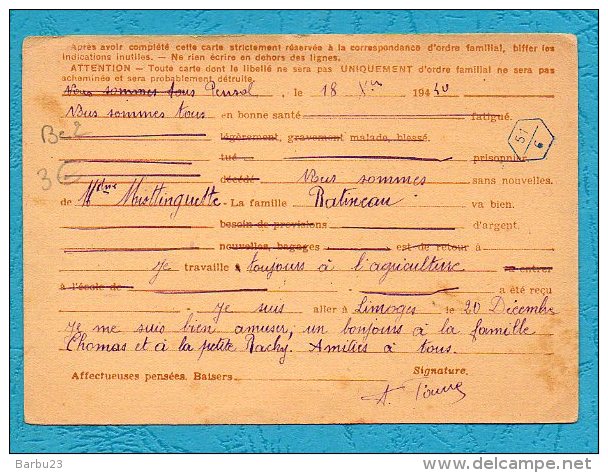 Après avoir complété cette carte strictement réservée à la correspondance d'ordre familial, biffer les
indications inutiles. — Ne rien écrire en dehors des lignes.
ATTENTION - Toute carte dont le libellé ne sera pas UNIQUEMENT d'ordre familial ne sera pas
acheminée et sera probablement détruite.
Nous sommes tous , le 18 Xbre 1940
Nous sommes tous en bonne santé fatigué.
légèrement, gravement malade, blessé.
51
6
tué prisonnier
3€
décédé Nous sommes sans nouvelles.
de Mme Mistinguette - La famille Ratineau va bien.
besoin de provisions d'argent.
nouvelles, bagages est de retour à
je travaille toujours à l'agriculture rentrer
à l'école de a été reçu
je suis aller à Limoges le 20 Décembre
je me suis bien amuser, un bonjours à la famille
Thomas et à la petite Rachy. Amitiés à tous.
Affectueuses pensées. Baisers. Signature.
A.
Barbu23
www.delcampe.net